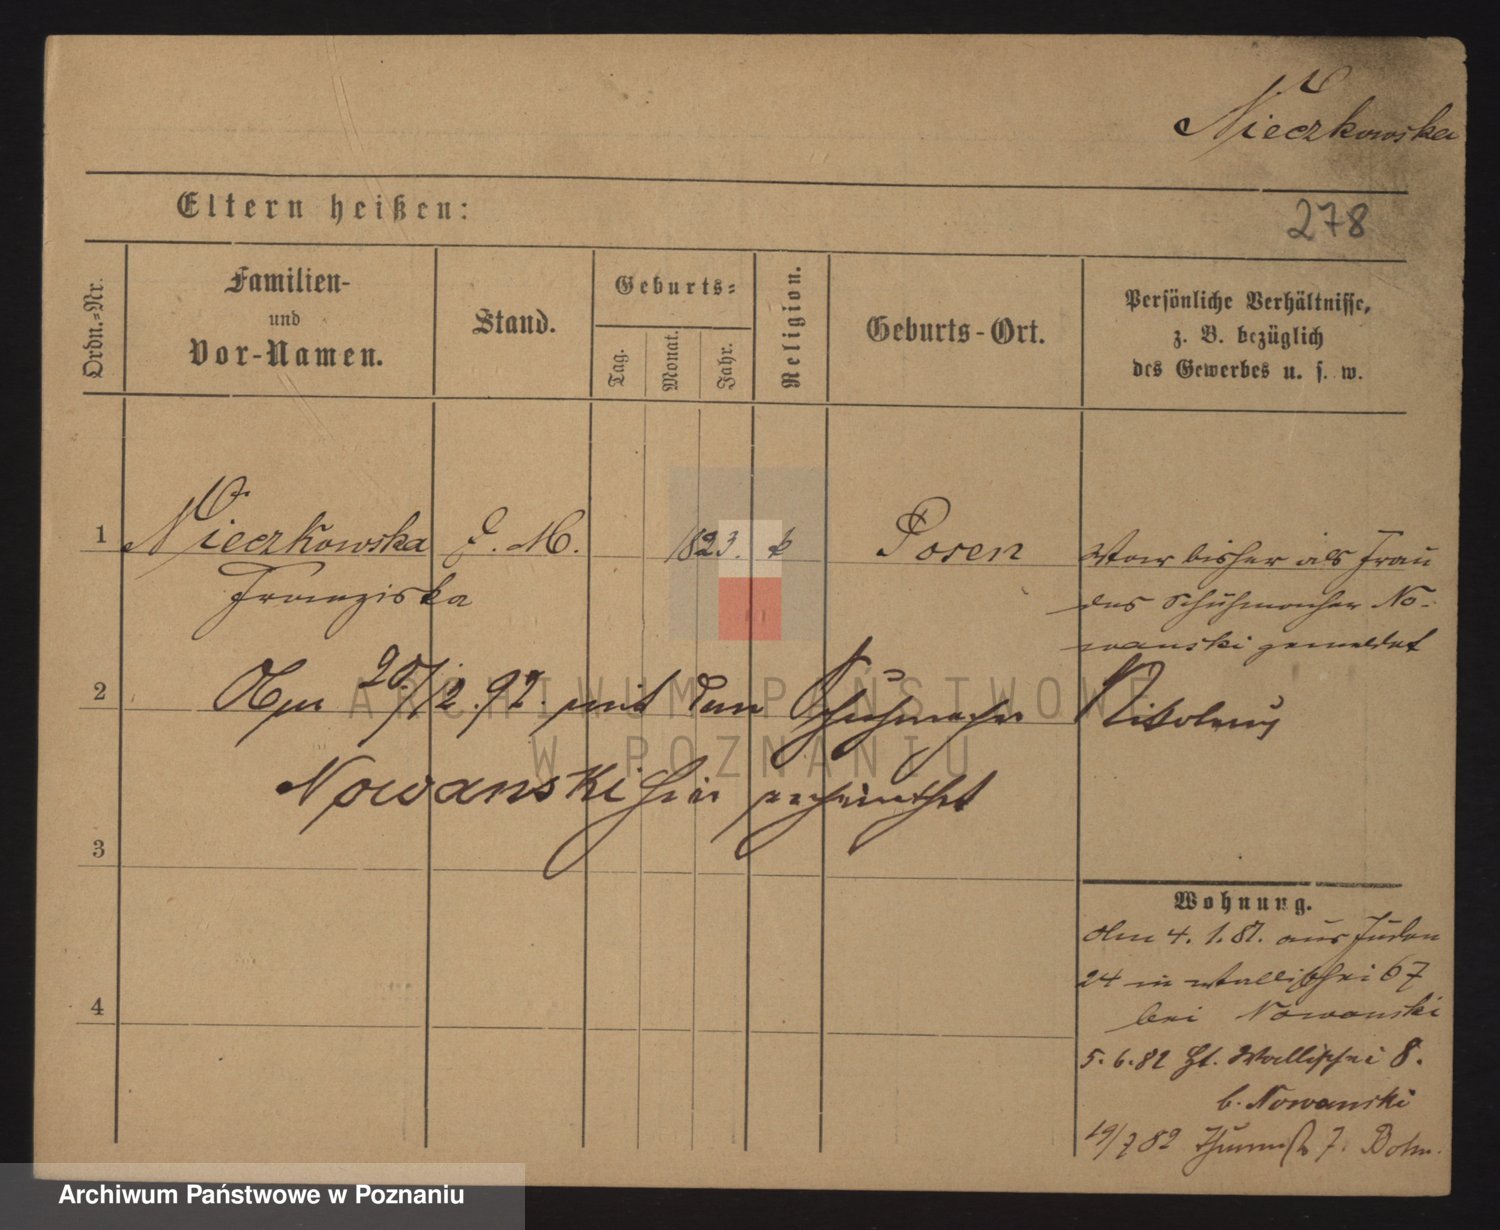 Nieczkowska
Eltern heißen:
278
Ordn.=Nr.
Familien-
und
Vor-Namen.
Stand.
Geburts=
Tag.
Monat.
Jahr.
Religion.
Geburts-Ort.
Persönliche Verhältnisse,
z. B. bezüglich
des Gewerbes u. s. w.
1
Nieczkowska
Franziska
1823.
k
Posen
War bisher als Frau
des Schuhmacher No-
wanski gemeldet
2
Am 20/12.92. mit dem Schuhmacher Nikolaus
Nowanski hier verheirathet
3
Wohnung.
Am 4. 1. 81. aus Juden
24 in Wallischei 67
bei Nowanski
4
5.6.82 Wallischei 8.
b. Nowanski
19/7 82 7.
ARCHIWUM PAŃSTWOWE
W POZNANIU
Archiwum Państwowe w Poznaniu